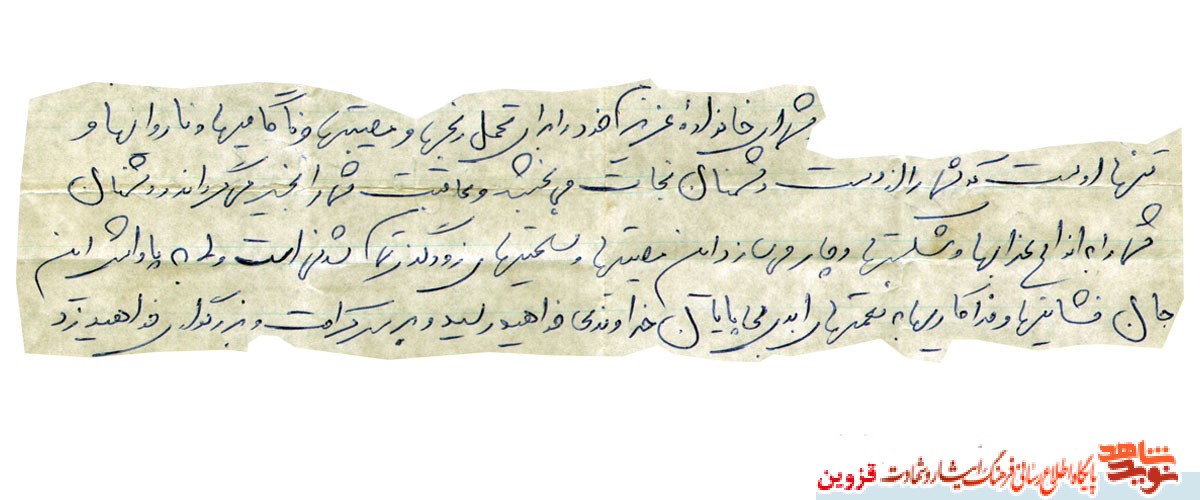 شما ای خانوادۀ عزیزم خود را برای تحمل رنجها و مصیبتها و ناگامیها و ناروایها و
تنها اوست که شما را از دست دشمنان نجات می بخشد و عاقبت شما را بخیر می گرداند و دشمنان
شما را به انواع عذابها و شکستها دچار می سازد این مصیبتها و سختیهای زودگذر تمام شدنی است ولی به پاداش این
جان فشانیها و فداکاریها به نعمتهای ابدی بی پایان خداوندی خواهید رسید و بر سر کرامت و بزرگواری خواهید زد
نوید شاهد
پایگاه اطلاع رسانی فرهنگ ایثار و شهادت قزوین